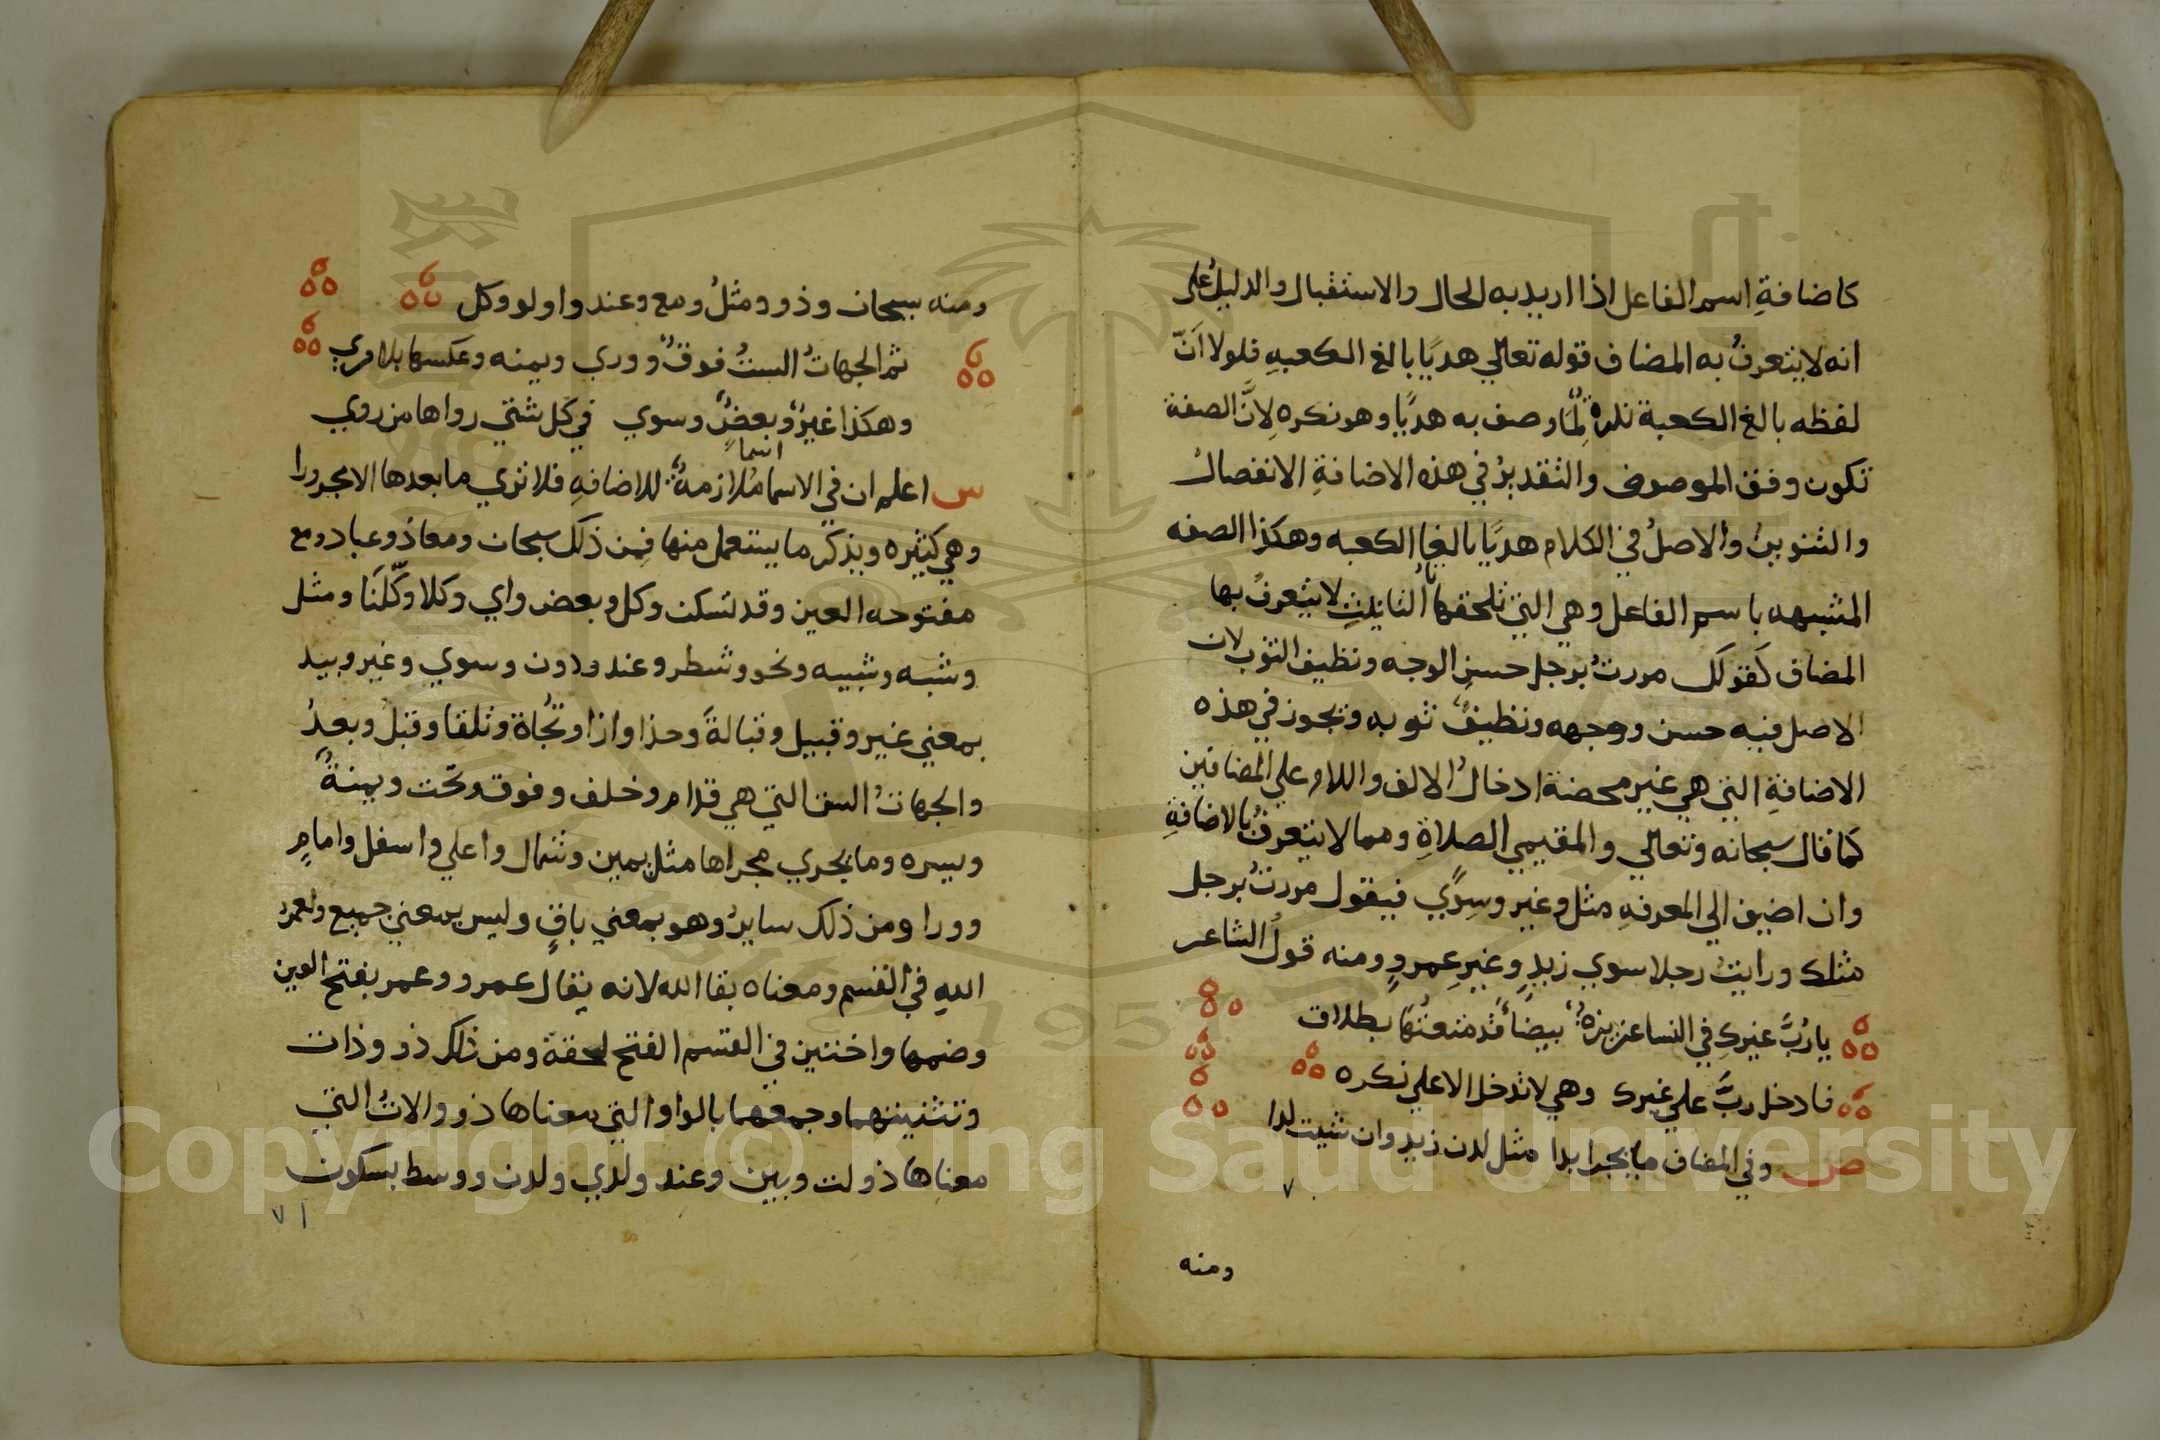 كاضافةِ اسم الفاعل اذا اريد به الحال والاستقبال والدليلُ على
انه لا يتعرفُ به المضاف قوله تعالي هديًا بالغ الكعبهِ فلولا اَنّ
لفظه بالغ الكعبة نكرةٌ لَمَا وصف به هديًا وهو نكره لِانَّ الصفة
تكون وفق الموصوف والتقديرُ في هذه الاضافةِ الانفصالُ
والتنوينُ والاصلُ في الكلام هديًا بالغا الكعبه وهكذا الصفه
المشبهه باسم الفاعل وهي التي تلحقها تاُ التانيثِ لا يتعرفُ بها
المضاف كَقولك مررتُ برجل حسنِ الوجه ونظيف الثوب لان
الاصل فيه حسن ووجهه ونظيفٌ ثوبه ويجوز في هذه
الاضافةِ التي هي غير محضة ادخالُ الالف واللام علي المضافين
كما قال سبحانه وتعالي والمقيمي الصلاةِ ومما لا يتعرفُ بالاضافةِ
وان اضيف الي المعرفهِ مثل وغير وسِوًي فيقول مررتُ برجل
مثلك ورايتُ رجلا سوي زيدٍ وغيرِ عمرو ومنه قولُ الشاعر
يا رُبَّ غيركِ في النسا عزيزةٌ بيضاً قد متعتُها بطلاق
فادخل ربَّ علي غيرك وهي لا تدخل الا علي نكره
ص وفي المضاف ما يجر ابدا مثل لدن زيدٍ وان شيت لدا
٧٠
ومنه
ومنه سبحان وذو ومثلُ ومع وعند واولو وكل
ثم الجهاتُ الستُ فوقٌ ووري ويمنه وعكسها بلا مري
وهكذا غيرٌ وبعضٌ وسوي في كل شتي رواها من روي
س اعلم ان في الاسما اسماً مُلازمةٌ للاضافهِ فلا تري ما بعدها الا مجرورا
وهي كثيره ويذكر ما يستعمل منها فمن ذلك سبحان ومعاذ وعياد ومع
مفتوحه العين وقد تسكن وكل وبعض واي وكلا وكلتَا ومثل
وشبه وشبيه ونحو وشطر وعند ودون وسوي وغير وبيد
بمعني غير وقبيل وقبالةَ وحذا وازا وتُجاة وتلقا وقبل وبعدُ
والجهاتُ الست التي هي قدام وخلف وفوق وتحت ويمنةٌ
ويسره وما يجري مجراها مثل يمين وشمال واعلي واسفل وامامٍ
وورا ومن ذلك سايرُ وهو بمعني باقٍ وليس بمعني جميع ولعمرُ
اللهِ في القسم ومعناه بقا الله لانه يقال عمر وعمر بفتح العين
وضمها واختير في القسم الفتح لخفة ومن ذلك ذو وذات
وتثنيتهما وجمعهما بالواو التي معناها ذو والاتُ التي
معناها ذولت وبين وعند ولدي ولدن ووسط بسكون
٧١
Copyright © King Saud University
1957